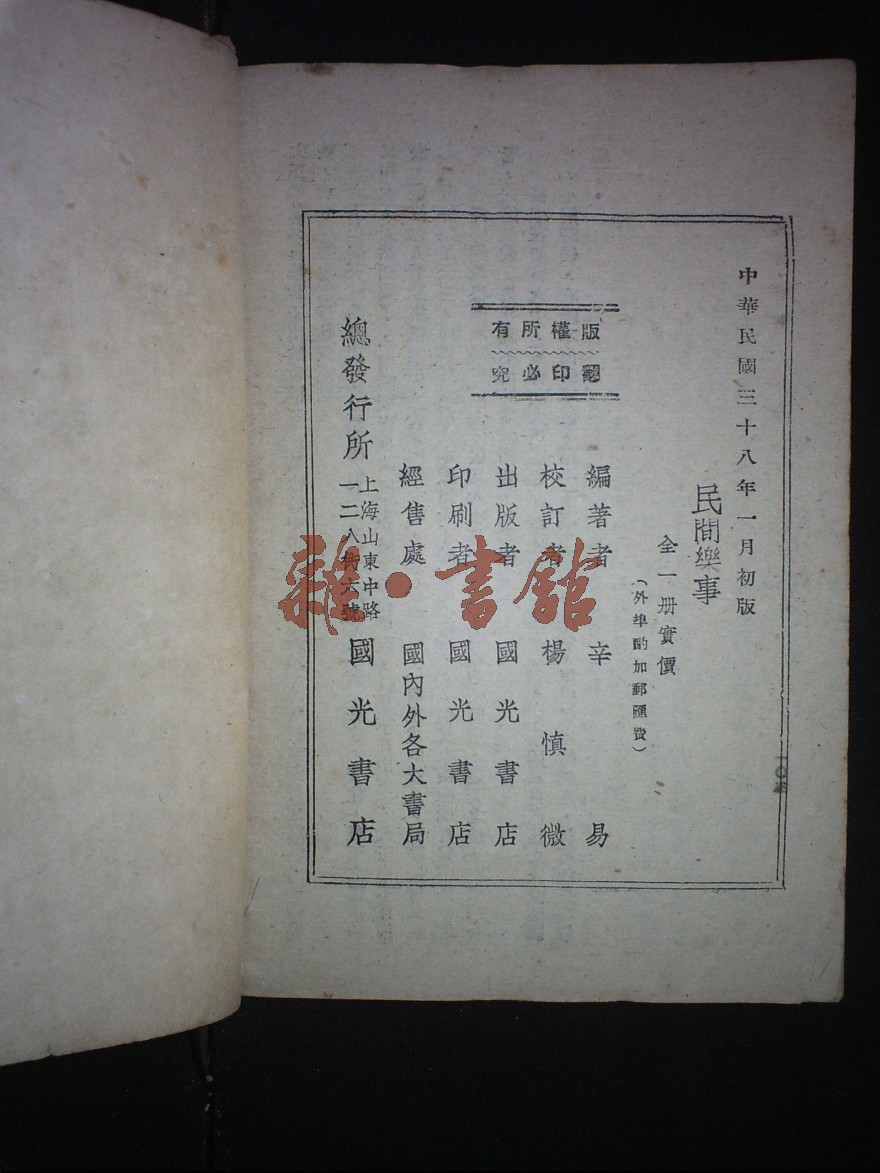 中華民國三十八年一月初版
民間樂事
全一册實價
（外埠酌加郵匯費）
版權所有
翻印必究
編著者 辛易
校訂者 楊慎微
出版者 國光書店
印刷者 國光書店
經售處 國內外各大書局
總發行所 上海山東中路
一二八街六號
國光書店
雜·書館